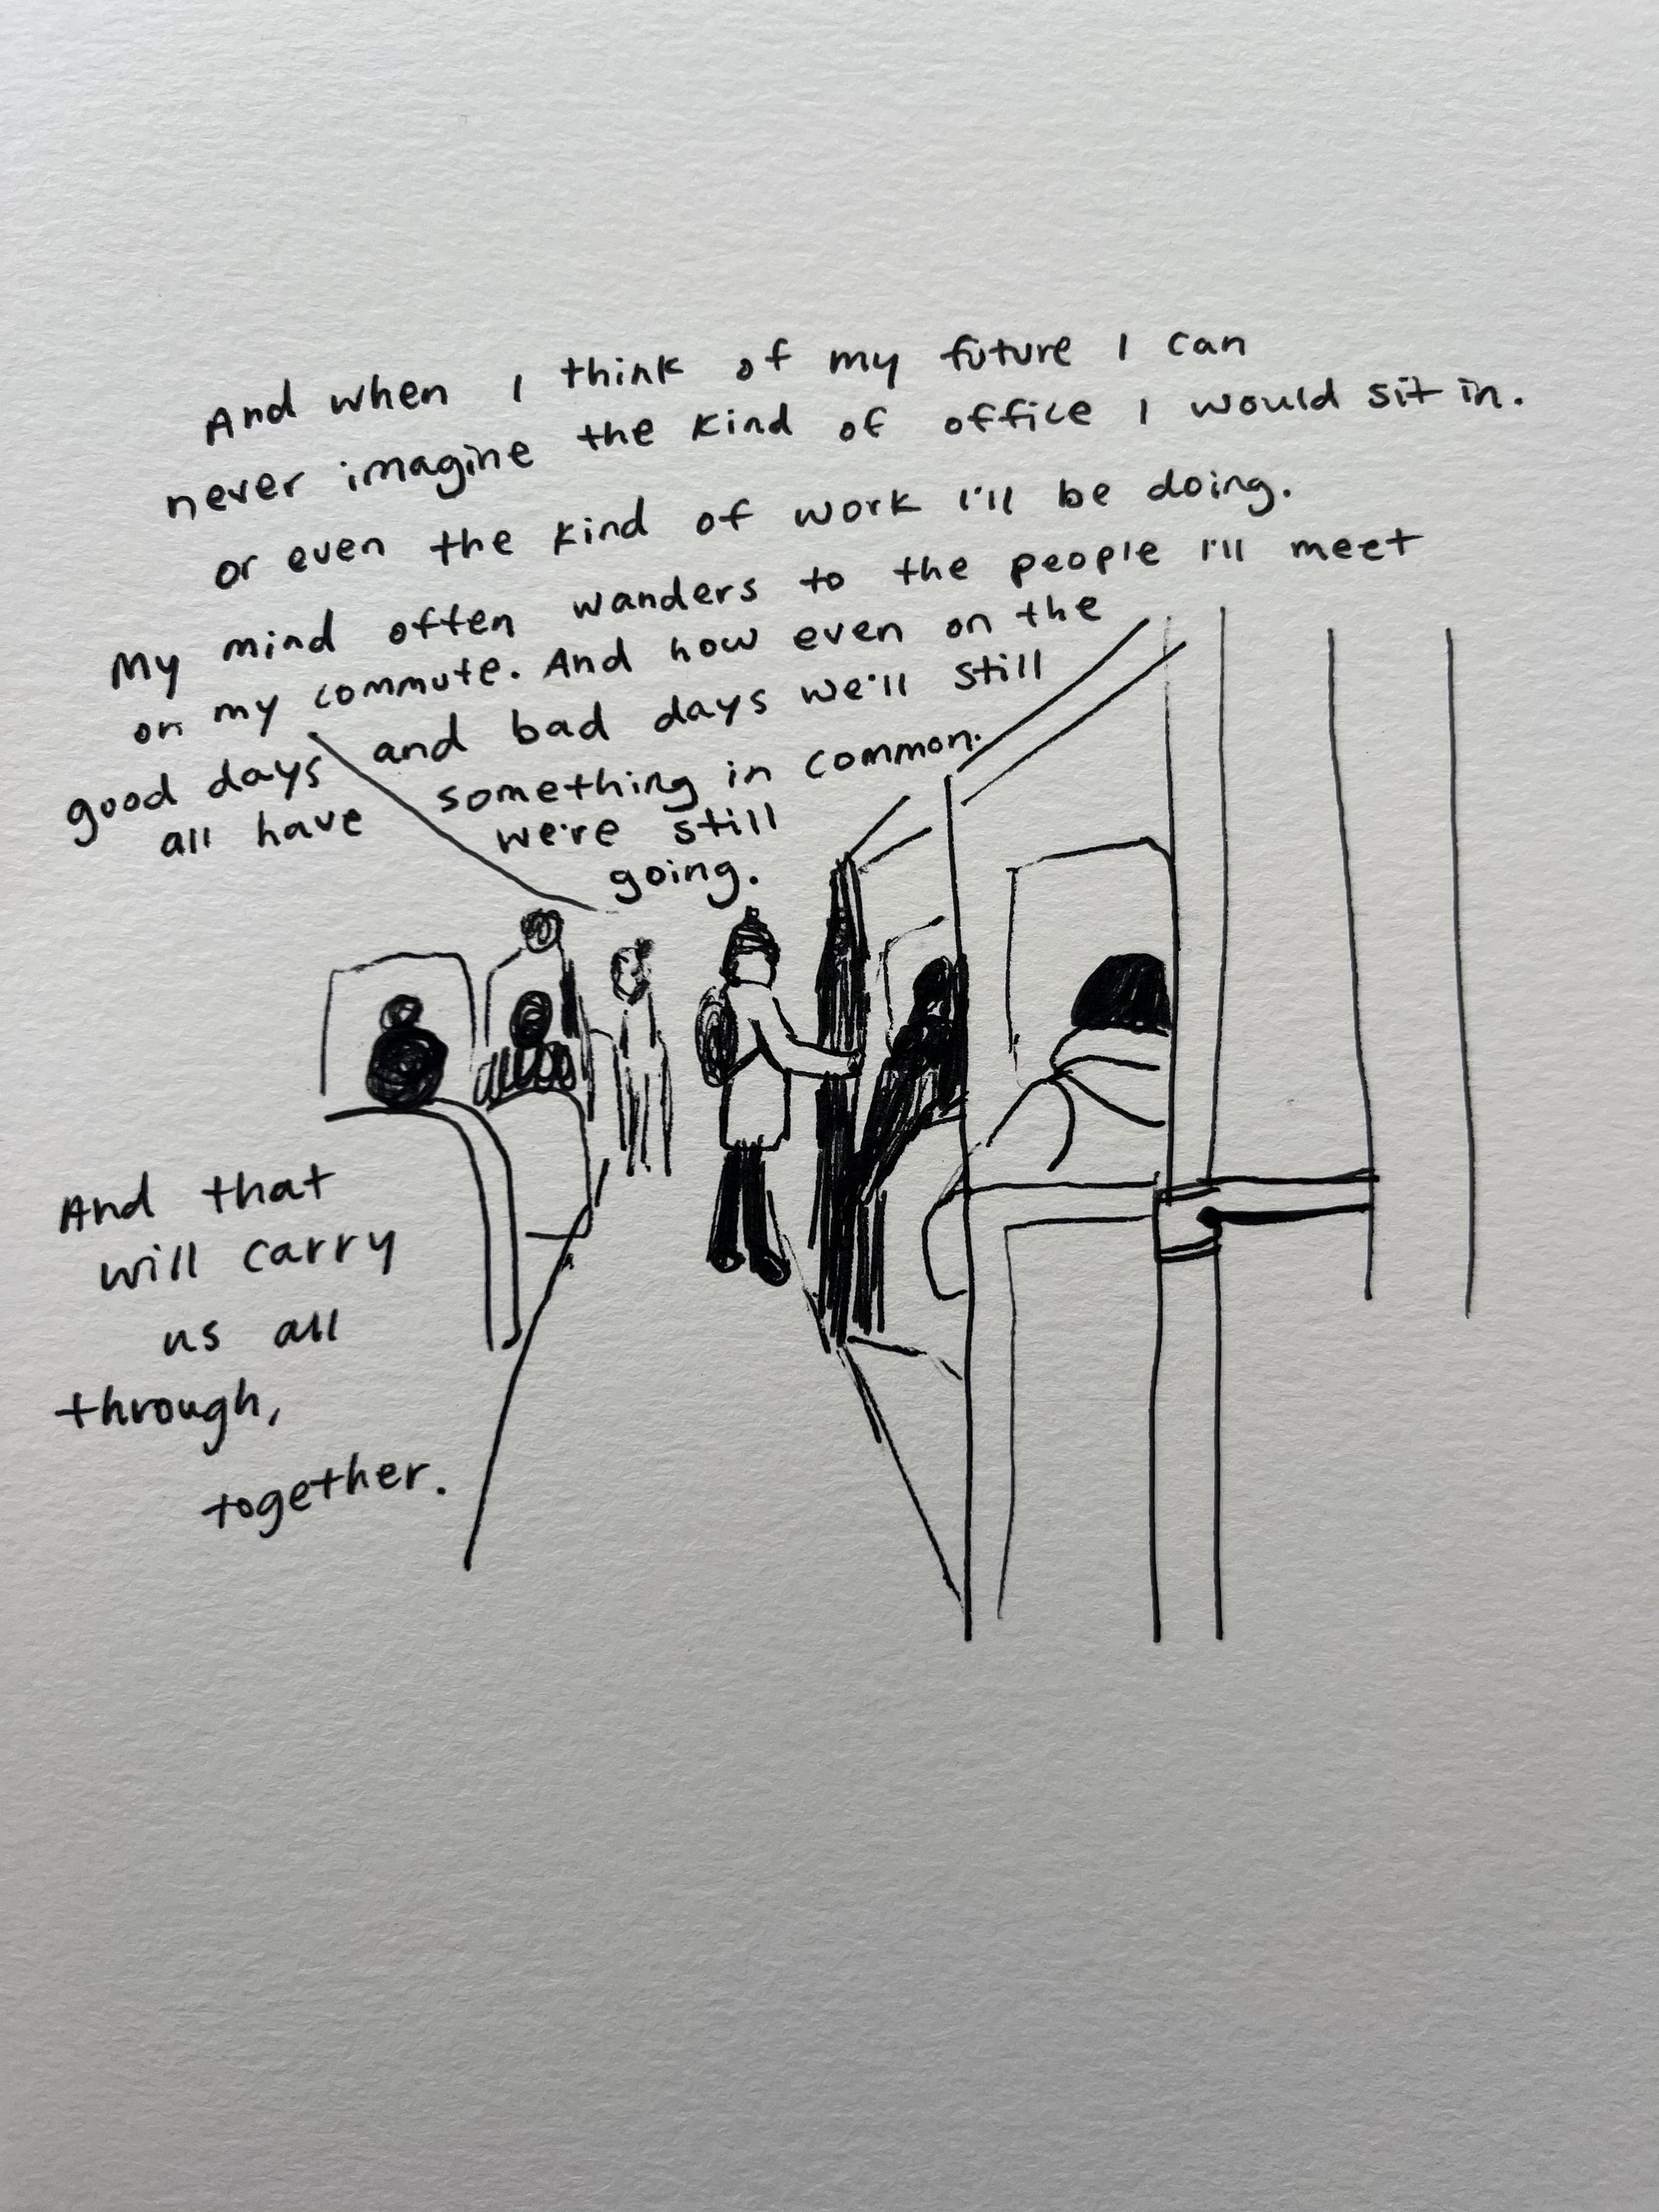 And when I think of my future I can
never imagine the kind of office I would sit in.
or even the kind of work I'll be doing.
My mind often wanders to the people I'll meet
on my commute. And how even on the
good days and bad days we'll still
all have something in common.
we're still
going.
And that
will carry
us all
through,
together.